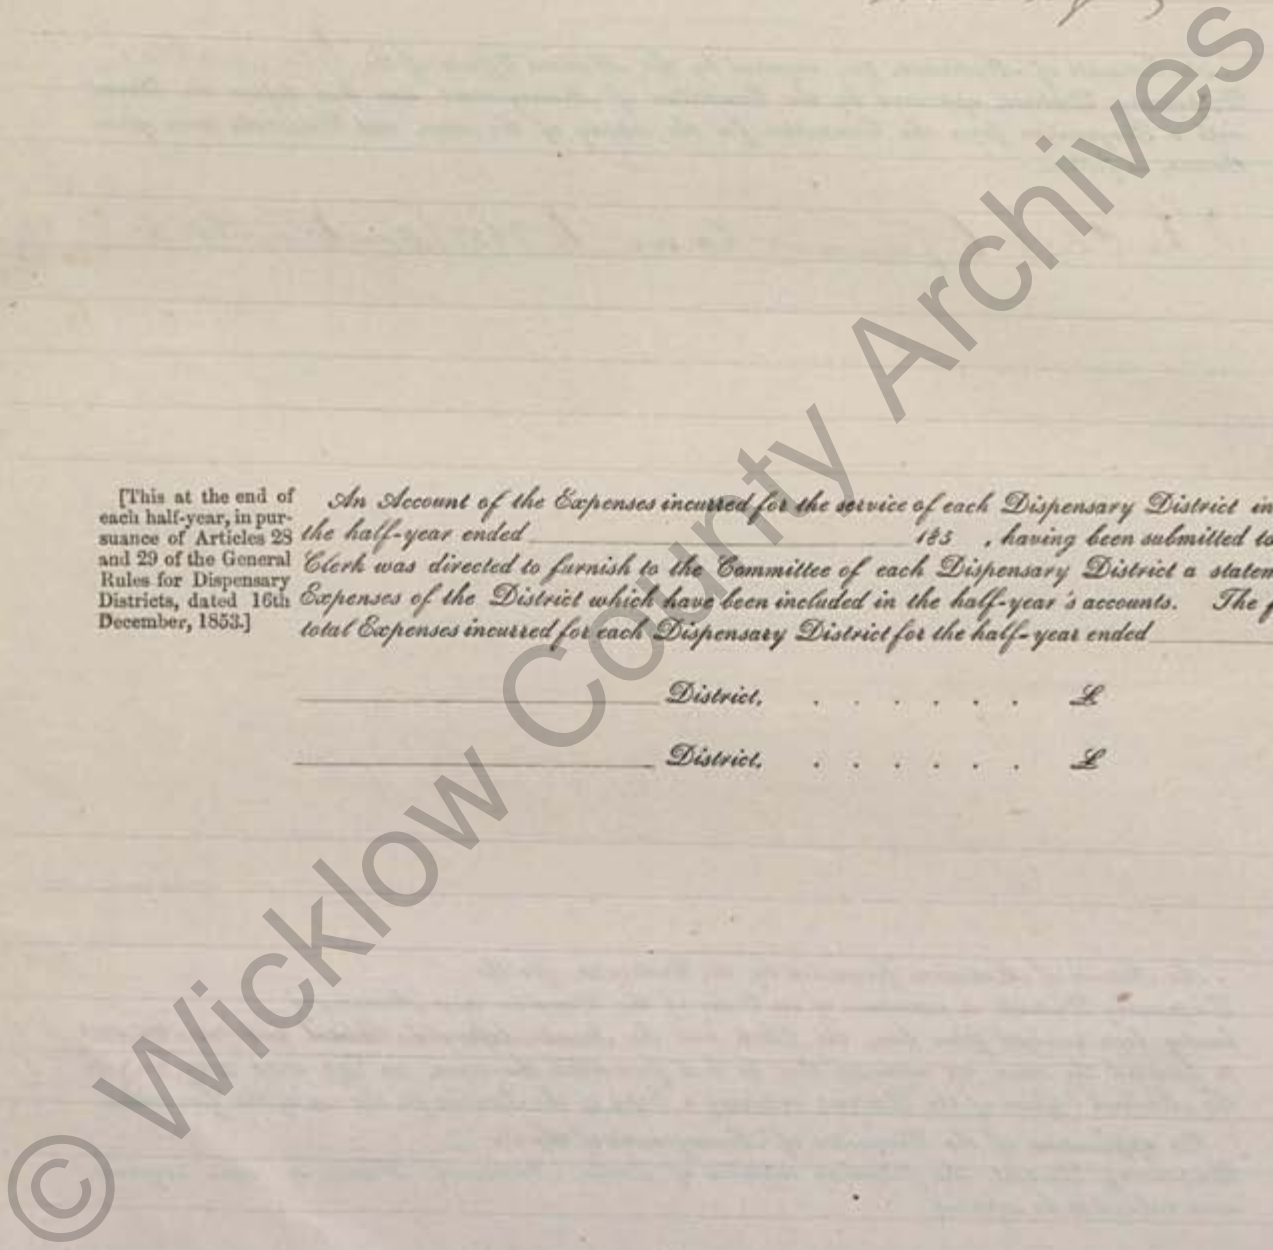 [This at the end of
each half-year, in pur-
suance of Articles 28
and 29 of the General
Rules for Dispensary
Districts, dated 16th
December, 1853.]
An Account of the Expenses incurred for the service of each Dispensary District in
the half-year ended 185 , having been submitted to
Clerk was directed to furnish to the Committee of each Dispensary District a statem
Expenses of the District which have been included in the half-year's accounts. The
total Expenses incurred for each Dispensary District for the half-year ended
District, . . . . . . £
District, . . . . . . £
© Wicklow County Archives